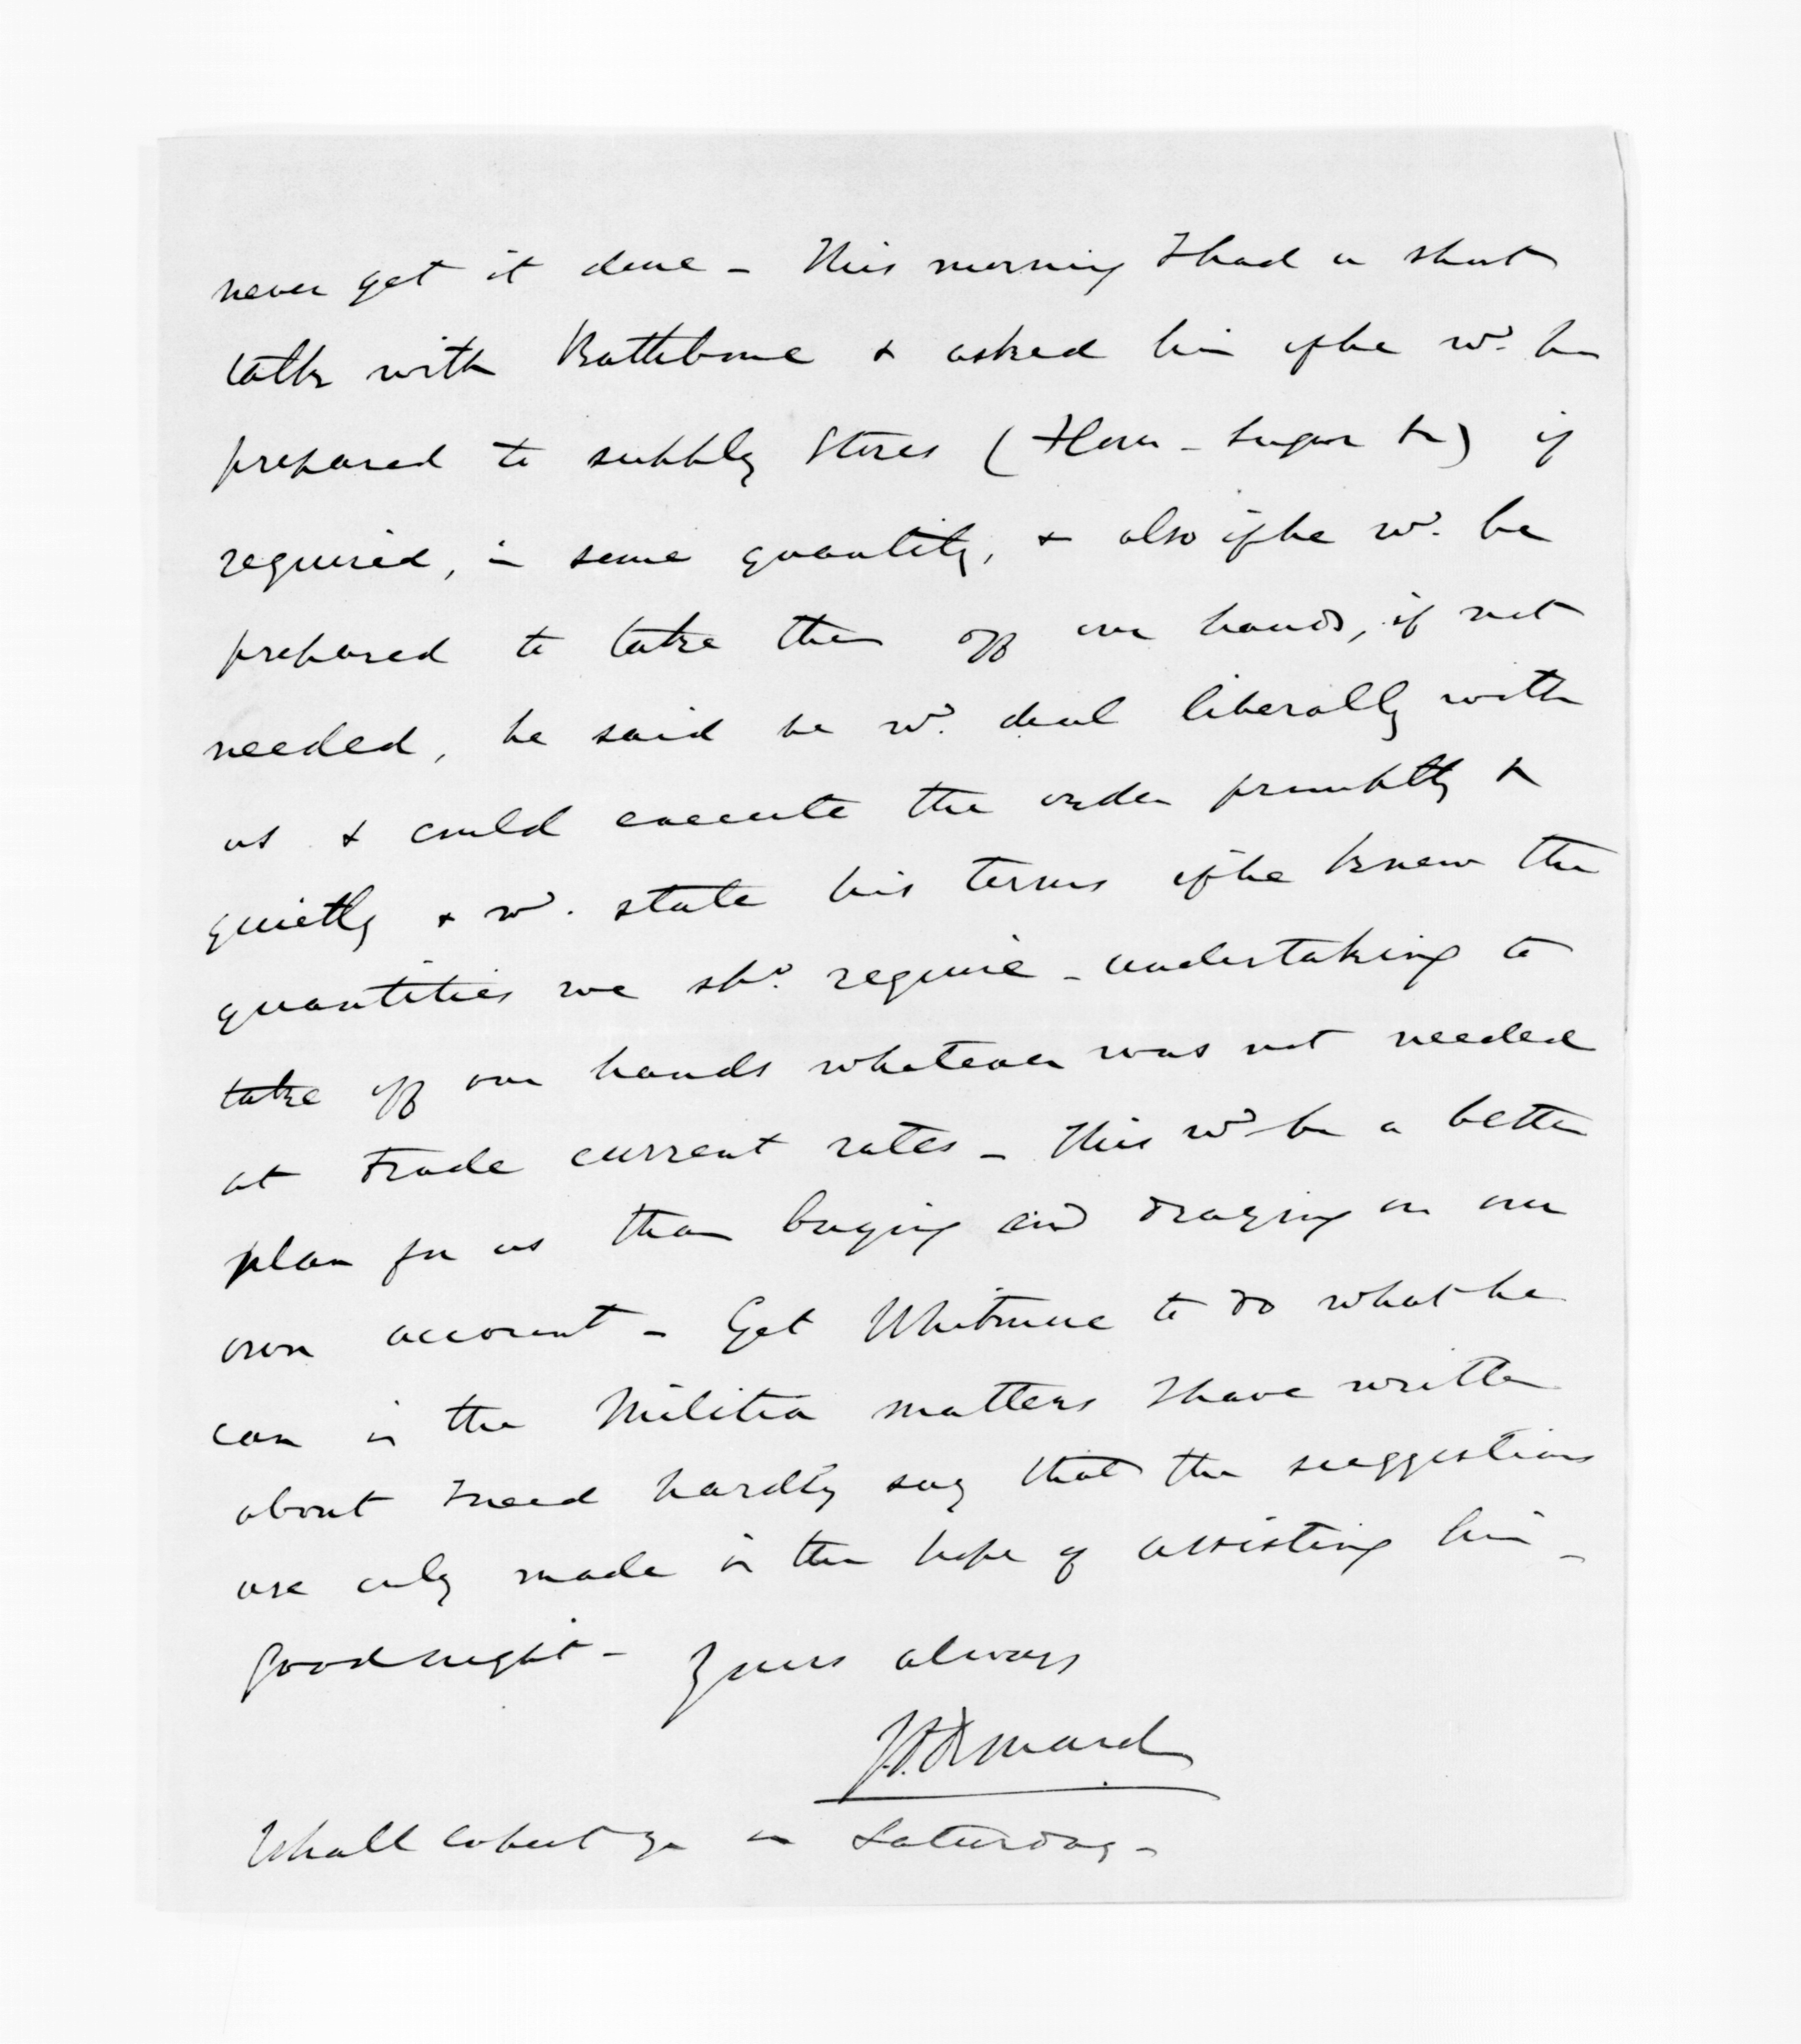 never get it done - This morning I had a short
talk with Rathbone & asked him if he wd. be
prepared to supply Stores (Flour - Sugar &c) if
required, in some quantity, & also if he wd. be
prepared to take them off our hands, if not
needed, he said he wd. deal liberally with
us & could execute the order promptly &
quietly & wd. state his terms if he knew the
quantities we shd. require - undertaking to
take off our hands whatever was not needed
at trade current rates - This wd be a better
plan for us than buying and draying on our
own account - Get Whitmore to do what he
can in the Militia matters I have written
about I need hardly say that the suggestions
are only made in the hope of assisting him -
Good night - Yours always
J.D. Ormond
I shall expect you on Saturday -